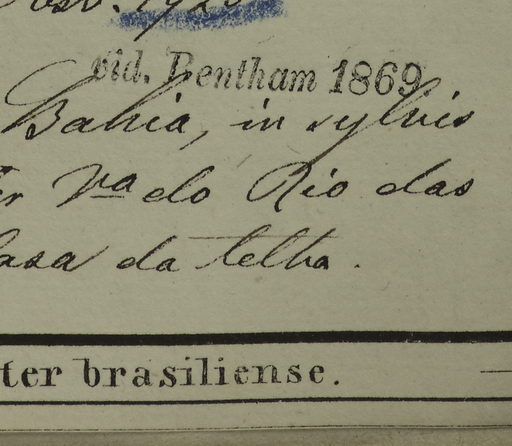 vid. Bentham 1869
Bahia, in sylvis
Va do Rio das
da telha.
ter brasiliense.